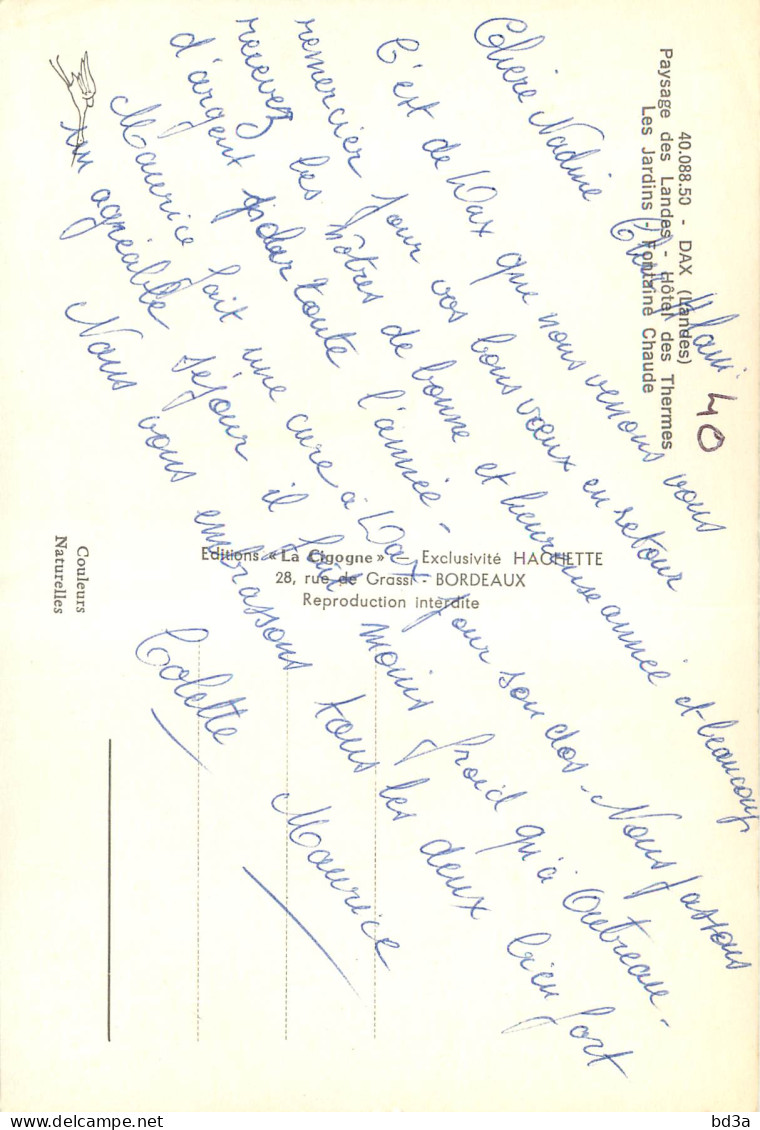 40.088.50 - DAX (Landes)
Paysage des Landes - Hôtel des Thermes
Les Jardins - Fontaine Chaude
40
Chère Nadine Cher Alain
C'est de Dax que nous venons vous
remercier pour vos bons vœux en retour
recevez les nôtres de bonne et heureuse année et beaucoup
d'argent pdar toute l'année -
Maurice fait une cure à Dax pour son dos - Nous passons
un agréable séjour il fait moins froid qu'à Outreau -
Nous vous embrassons tous les deux bien fort
Colette Maurice
Editions « La Cigogne » - Exclusivité HACHETTE
28, rue de Grassi - BORDEAUX
Reproduction interdite
Couleurs
Naturelles
delcampe.net
bd3a